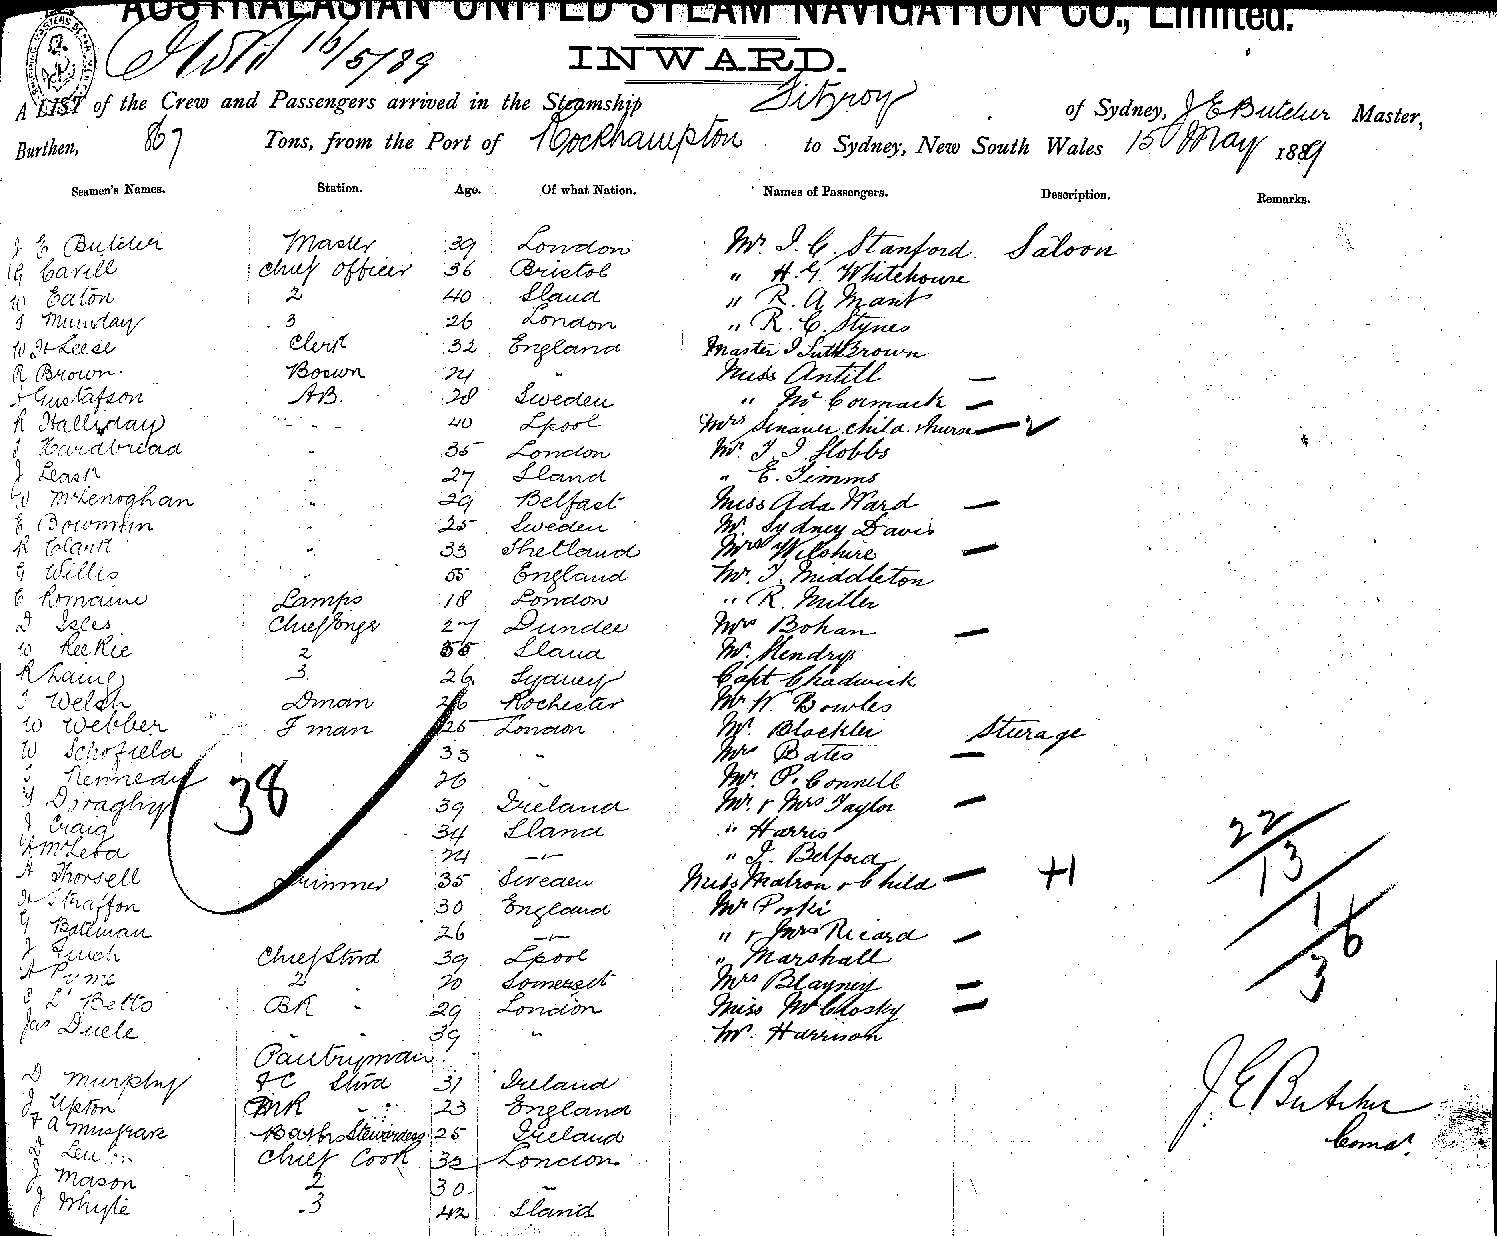 AUSTRALASIAN UNITED STEAM NAVIGATION CO., Limited.
16/5/89
INWARD.
A LIST of the Crew and Passengers arrived in the Steamship Fitzroy of Sydney, J E Butcher Master,
Burthen, 867 Tons, from the Port of Rockhampton to Sydney, New South Wales 15 May 1889
Seamen's Names. Station. Age. Of what Nation. Names of Passengers. Description. Remarks.
J E Butcher Master 39 London Mr. J. C. Stanford Saloon
G Cavill Chief Officer 36 Bristol " H. G. Whitehouse
W Eaton 2 40 Sland " R. A Mant
Munday 3 26 London " R. C. Stynes
W H Leese Clerk 32 England Master J Brown
R Brown Boswn 24 " Miss Antill
Gustafson AB. 28 Sweden " McCormack
R Halliday " 40 Lpool Mrs child & nurse
J Hardbread " 35 London Mr.
J Leask " 27 Sland " E. Timms
W McLenoghan " 29 Belfast Miss Ada Ward
E Bowman " 25 Sweden Mr. Sydney Davis
R Clark " 33 Shetland Mrs Wilshire
G Willis " 55 England Mr. T. Middleton
C Romaine Lamps 18 London " R. Miller
D Isles Chief Engr 27 Dundee Mrs Bohan
W Reekie 2 Sland Mr. Hendry
R Laing 3 26 Sydney Capt Chadwick
Welsh Dman 26 Rochester Mr W. Bowles
W Webber Fman 25 London Mr. Blackler Sturage
W Schofield 33 " Mrs Bates
Kennedy 26 " Mr. P. Connell
Doraghy 39 Ireland Mr. & Mrs Taylor
J Craig 34 Sland " Harris
McLeod 24 " " J. Belford
38
A Thorsell Trimmer 35 Sweden Miss Matron & Child +1
Straffon 30 England Mr
G Bateman 26 " " & Mrs Ricard
J Finch Chief Stwd 39 Lpool " Marshall
A Pyme 2 20 Somerset Mrs Blayney
L Betts BK " 29 London Miss McClosky
Jas Duele " " 39 " Mr. Harrison
Pantryman
D Murphy & C Stwd 31 Ireland
J Upton MR " 23 England
A Musgrave Stewardess 25 Ireland
Chief Cook London
J Mason 2 30 "
J Whyte 3 42 Sland
22
13
1
36
J. E. Butcher
Comdr.